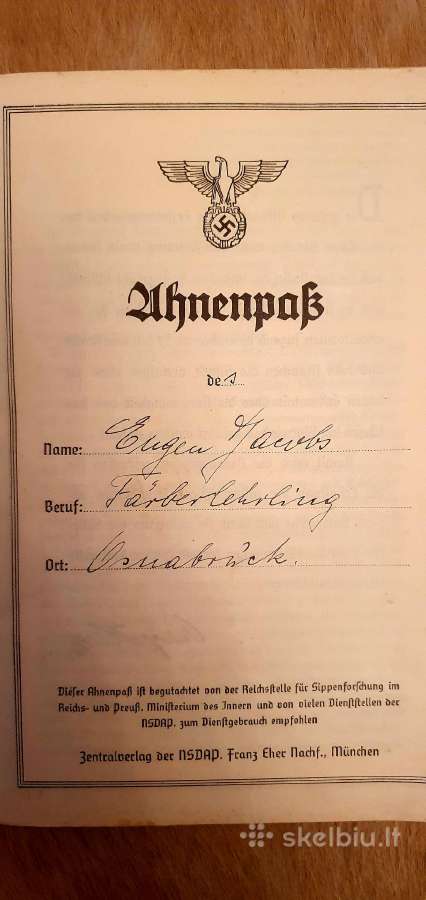 Ahnenpaß
des
Name: Eugen Jacobs
Beruf: Färberlehrling
Ort: Osnabrück.
Dieser Ahnenpaß ist begutachtet von der Reichsstelle für Sippenforschung im
Reichs- und Preuß. Ministerium des Innern und von vielen Dienststellen der
NSDAP. zum Dienstgebrauch empfohlen
Zentralverlag der NSDAP. Franz Eher Nachf., München
skelbiu.lt